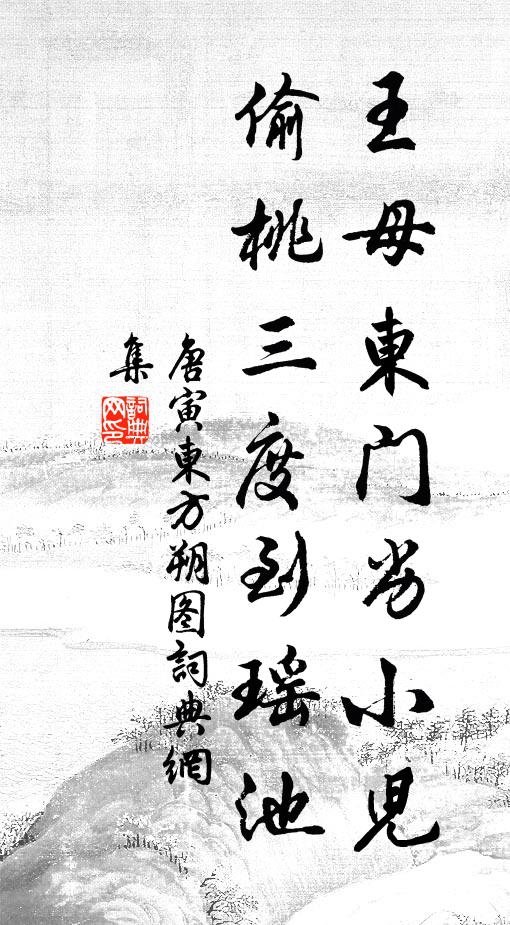 王母東門劣小兒
偷桃三度到瑤池
唐寅東方朔图詞典網
集
詞典
网印